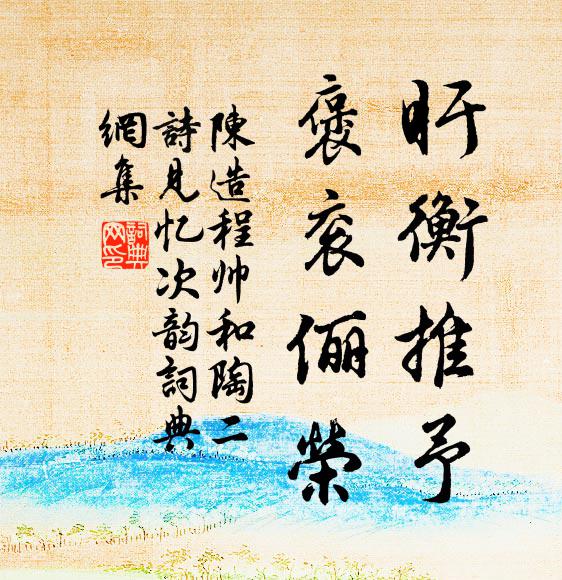 盱衡推予
褒衮俪榮
陳造程帅和陶二
詩見忆次韵詞典
網集
詞典
网印